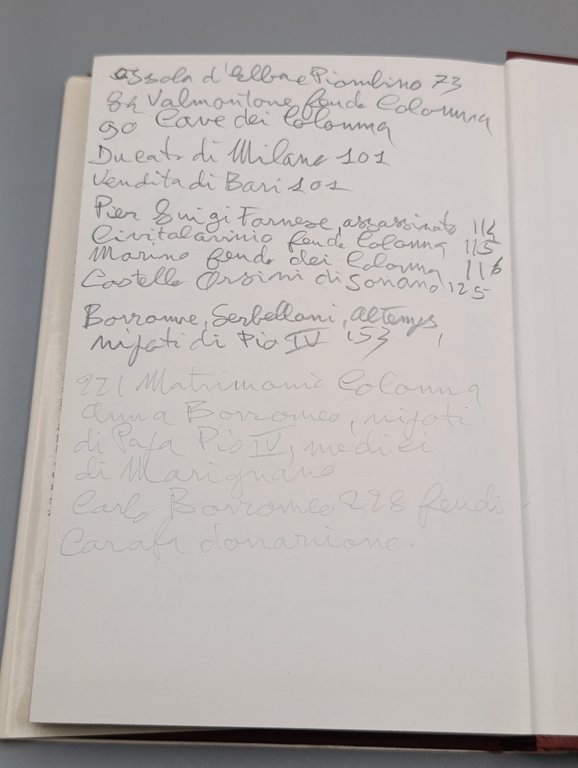 assola d'Elba e Piombino 73
84 Valmontone feudo Colonna
90 Cave dei Colonna
Ducato di Milano 101
Vendita di Bari 101
Pier Luigi Farnese, assassinato 112
Civitalavinio feudo Colonna 115
Marino feudo dei Colonna 116
Castello Orsini di Sorano 125
Borromeo, Serbelloni, Altemps,
nipoti di Pio IV 153
221 Matrimonio Colonna
Anna Borromeo, nipoti
di Papa Pio IV, medici
di Marignano
Carlo Borromeo 228 feudi
Carafa donazione.